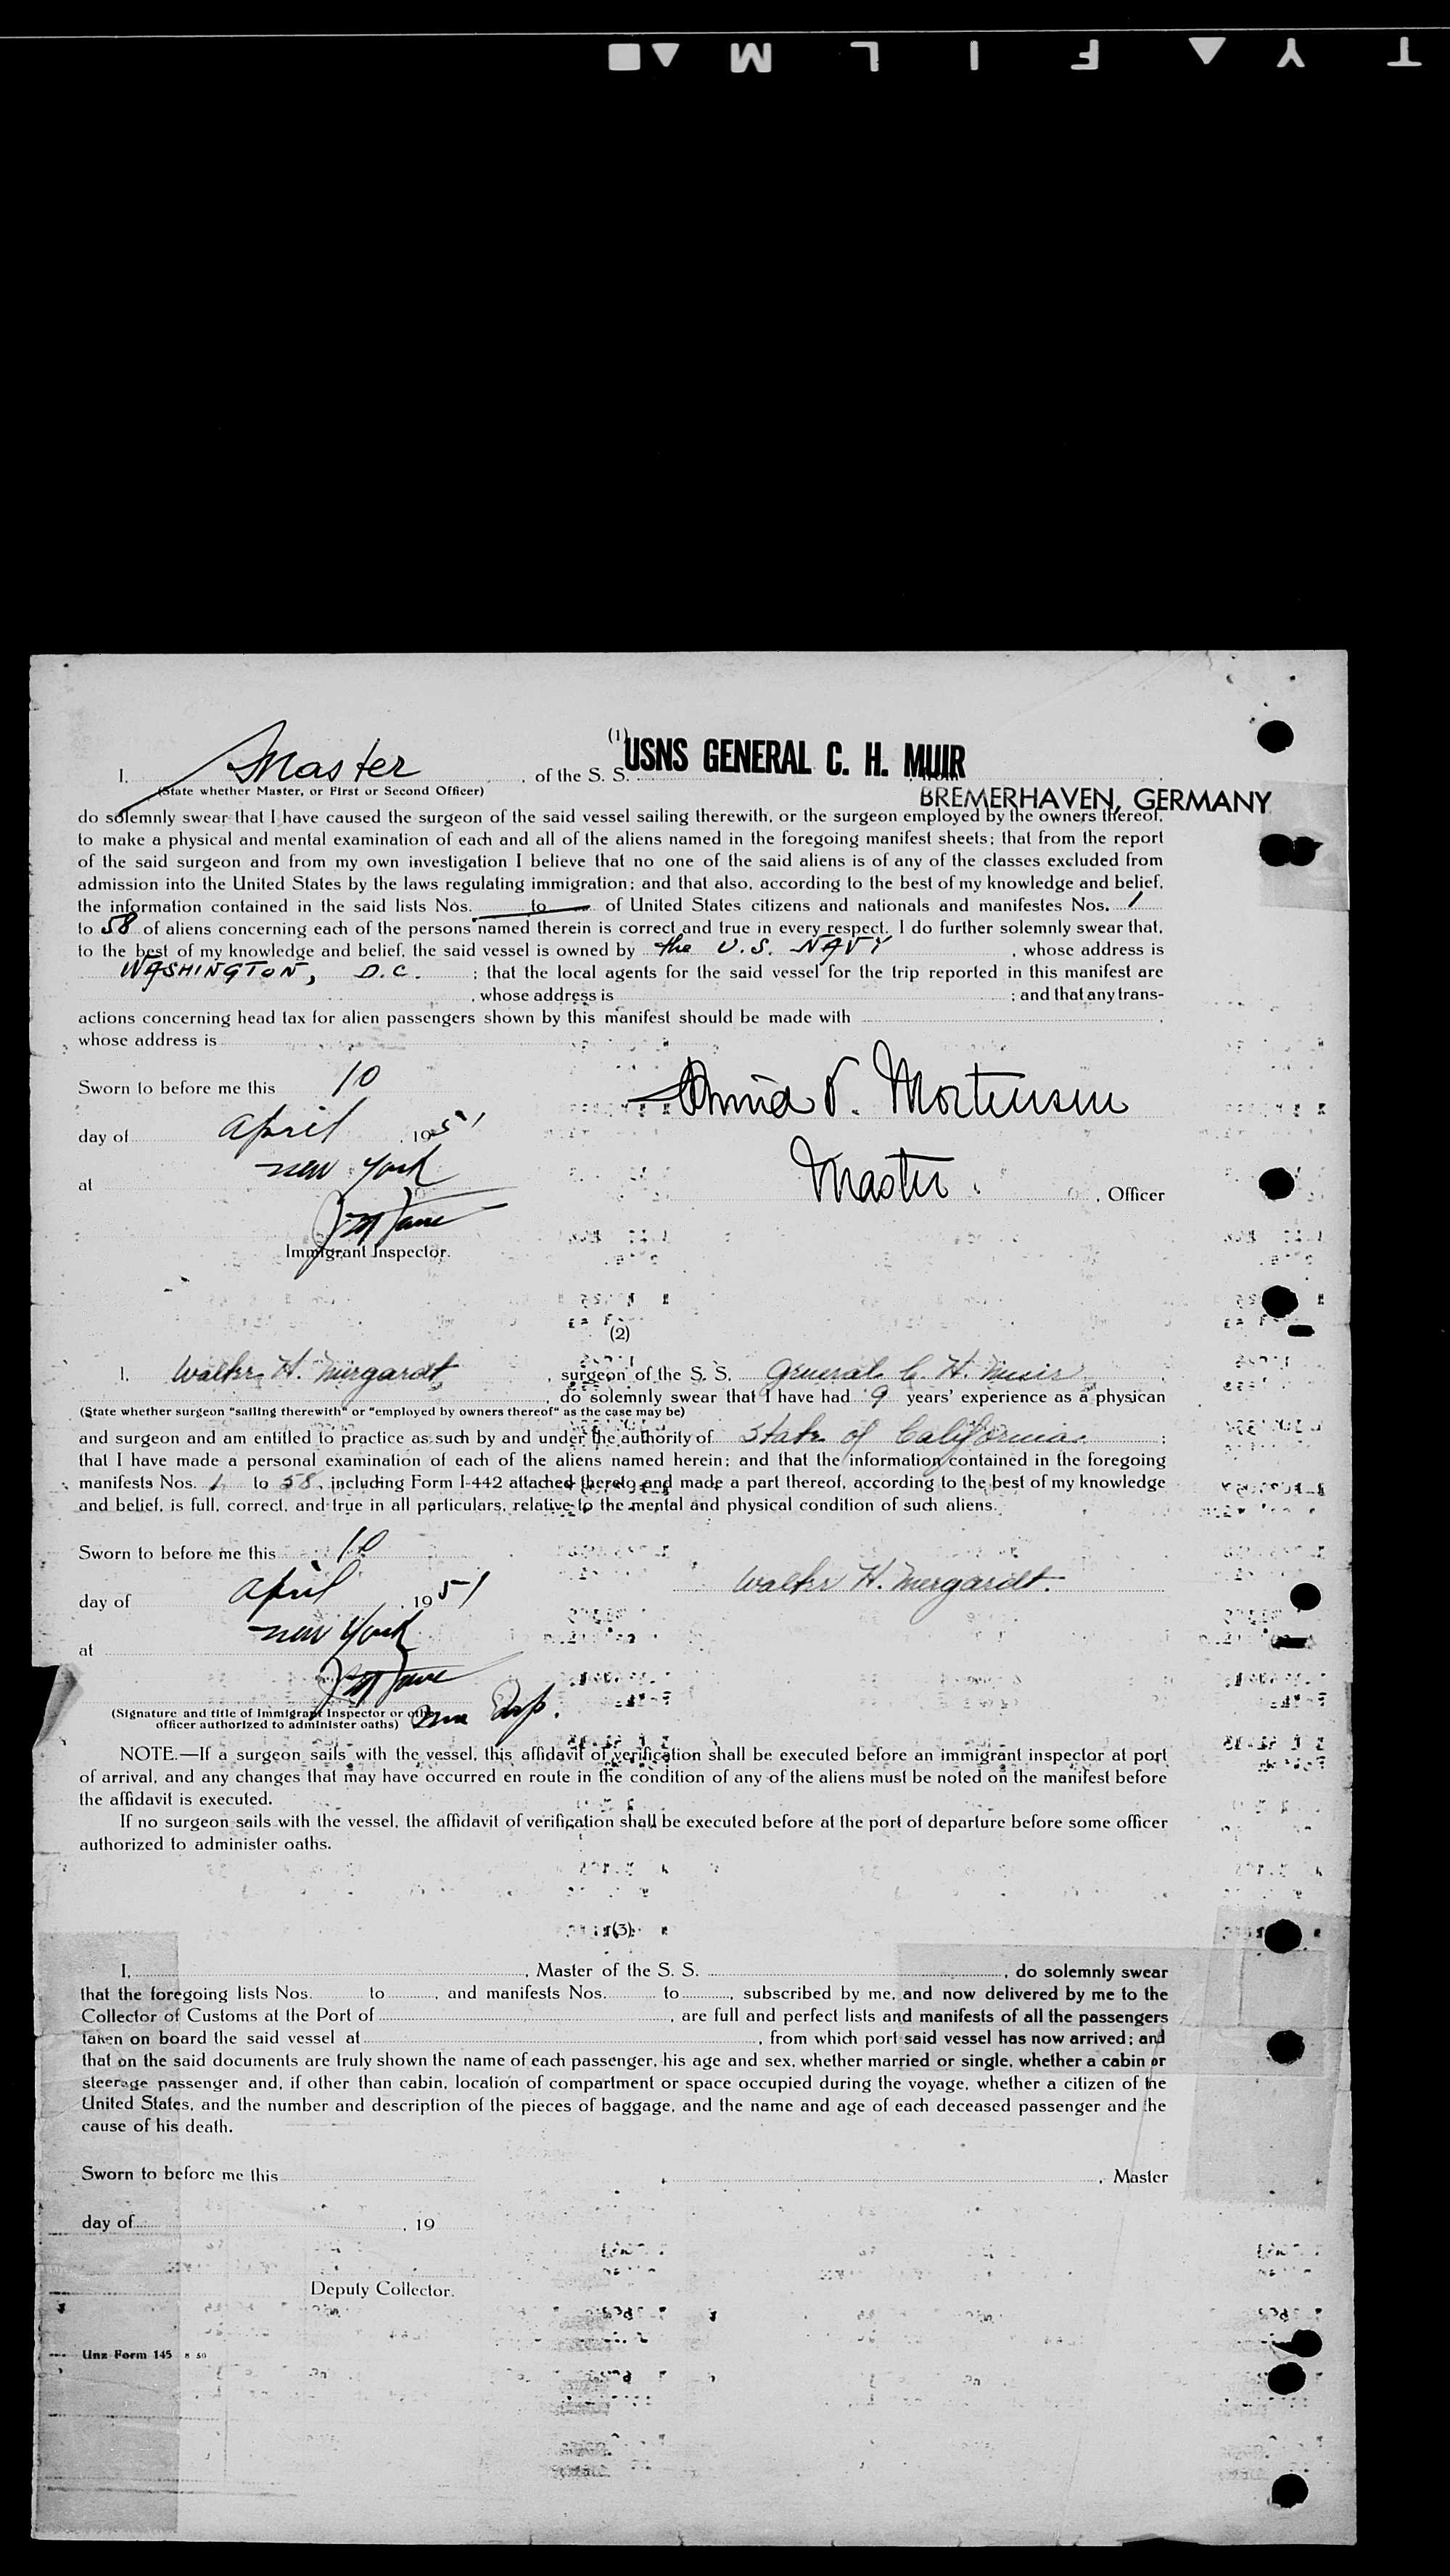 (1)
I, Master, of the S. S. USNS GENERAL C. H. MUIR, from
(State whether Master, or First or Second Officer)
BREMERHAVEN, GERMANY
do solemnly swear that I have caused the surgeon of the said vessel sailing therewith, or the surgeon employed by the owners thereof,
to make a physical and mental examination of each and all of the aliens named in the foregoing manifest sheets; that from the report
of the said surgeon and from my own investigation I believe that no one of the said aliens is of any of the classes excluded from
admission into the United States by the laws regulating immigration; and that also, according to the best of my knowledge and belief,
the information contained in the said lists Nos. to of United States citizens and nationals and manifestes Nos. 1
to 58 of aliens concerning each of the persons named therein is correct and true in every respect. I do further solemnly swear that,
to the best of my knowledge and belief, the said vessel is owned by the U.S. NAVY, whose address is
WASHINGTON, D.C. ; that the local agents for the said vessel for the trip reported in this manifest are
, whose address is ; and that any trans-
actions concerning head tax for alien passengers shown by this manifest should be made with ,
whose address is
Sworn to before me this 10
Mortensen
day of April, 1951
at New York
Master, Officer
Immigrant Inspector.
(2)
I, Walter H. Mergardt, surgeon of the S. S. General C. H. Muir,
, do solemnly swear that I have had 9 years' experience as a physican
(State whether surgeon "sailing therewith" or "employed by owners thereof" as the case may be)
and surgeon and am entitled to practice as such by and under the authority of State of California ;
that I have made a personal examination of each of the aliens named herein; and that the information contained in the foregoing
manifests Nos. 1 to 58, including Form I-442 attached thereto and made a part thereof, according to the best of my knowledge
and belief, is full, correct, and true in all particulars, relative to the mental and physical condition of such aliens.
Sworn to before me this 10
Walter H. Mergardt.
day of April, 1951
at New York
(Signature and title of Immigrant Inspector or other
officer authorized to administer oaths)
NOTE.—If a surgeon sails with the vessel, this affidavit of verification shall be executed before an immigrant inspector at port
of arrival, and any changes that may have occurred en route in the condition of any of the aliens must be noted on the manifest before
the affidavit is executed.
If no surgeon sails with the vessel, the affidavit of verification shall be executed before at the port of departure before some officer
authorized to administer oaths.
(3)
I, , Master of the S. S. , do solemnly swear
that the foregoing lists Nos. to , and manifests Nos. to , subscribed by me, and now delivered by me to the
Collector of Customs at the Port of , are full and perfect lists and manifests of all the passengers
taken on board the said vessel at , from which port said vessel has now arrived; and
that on the said documents are truly shown the name of each passenger, his age and sex, whether married or single, whether a cabin or
steerage passenger and, if other than cabin, location of compartment or space occupied during the voyage, whether a citizen of the
United States, and the number and description of the pieces of baggage, and the name and age of each deceased passenger and the
cause of his death.
Sworn to before me this , Master
day of , 19
Deputy Collector.
Unz Form 145 8 50